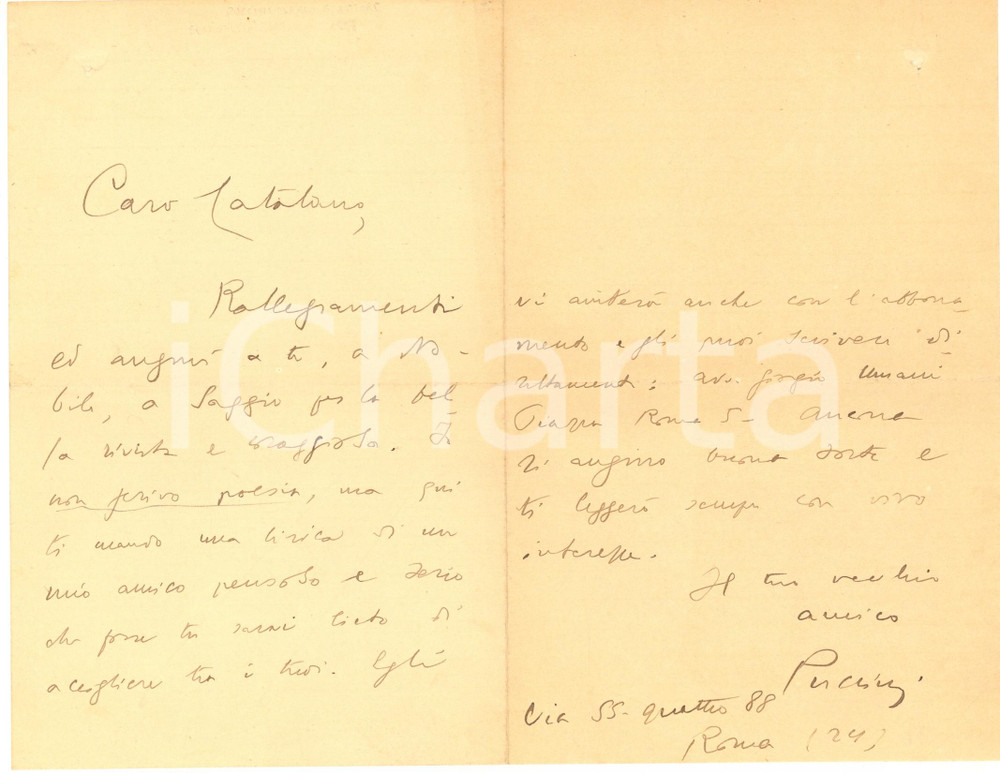 Caro Catalano,
Rallegramenti
ed auguri a te, a No-
bile, a Saggio per la bel-
la rivista e coraggiosa. Io
non scrivo poesia, ma qui
ti mando una lirica di un
mio amico pensoso e serio
che forse tu sarai lieto di
accogliere tra i tuoi. Egli
vi aiuterà anche con l'abbona-
mento e gli puoi scrivere di-
rettamente: avv. Giorgio Umani
Piazza Roma 5 - Ancona
Ti auguro buona sorte e
ti leggerò sempre con vivo
interesse.
Il tuo vecchio
amico
Puccini
Via SS. quattro 88
Roma (24)
iCharta